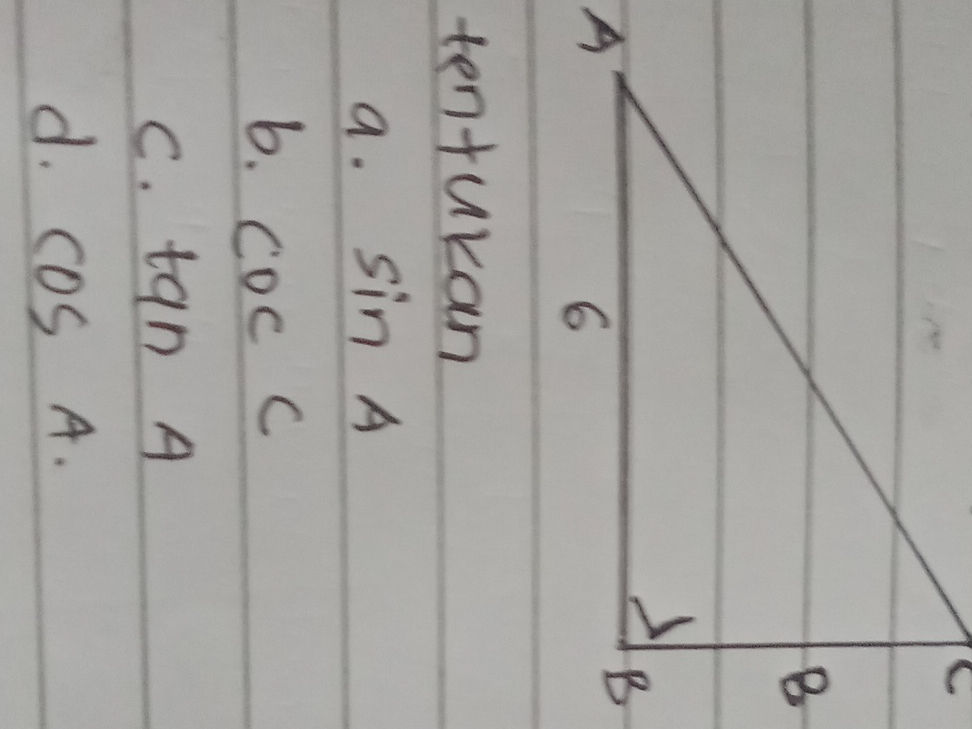 C
8
A 6 B
tentukan
a. sin A
b. coc C
c. tan A
d. cos A.